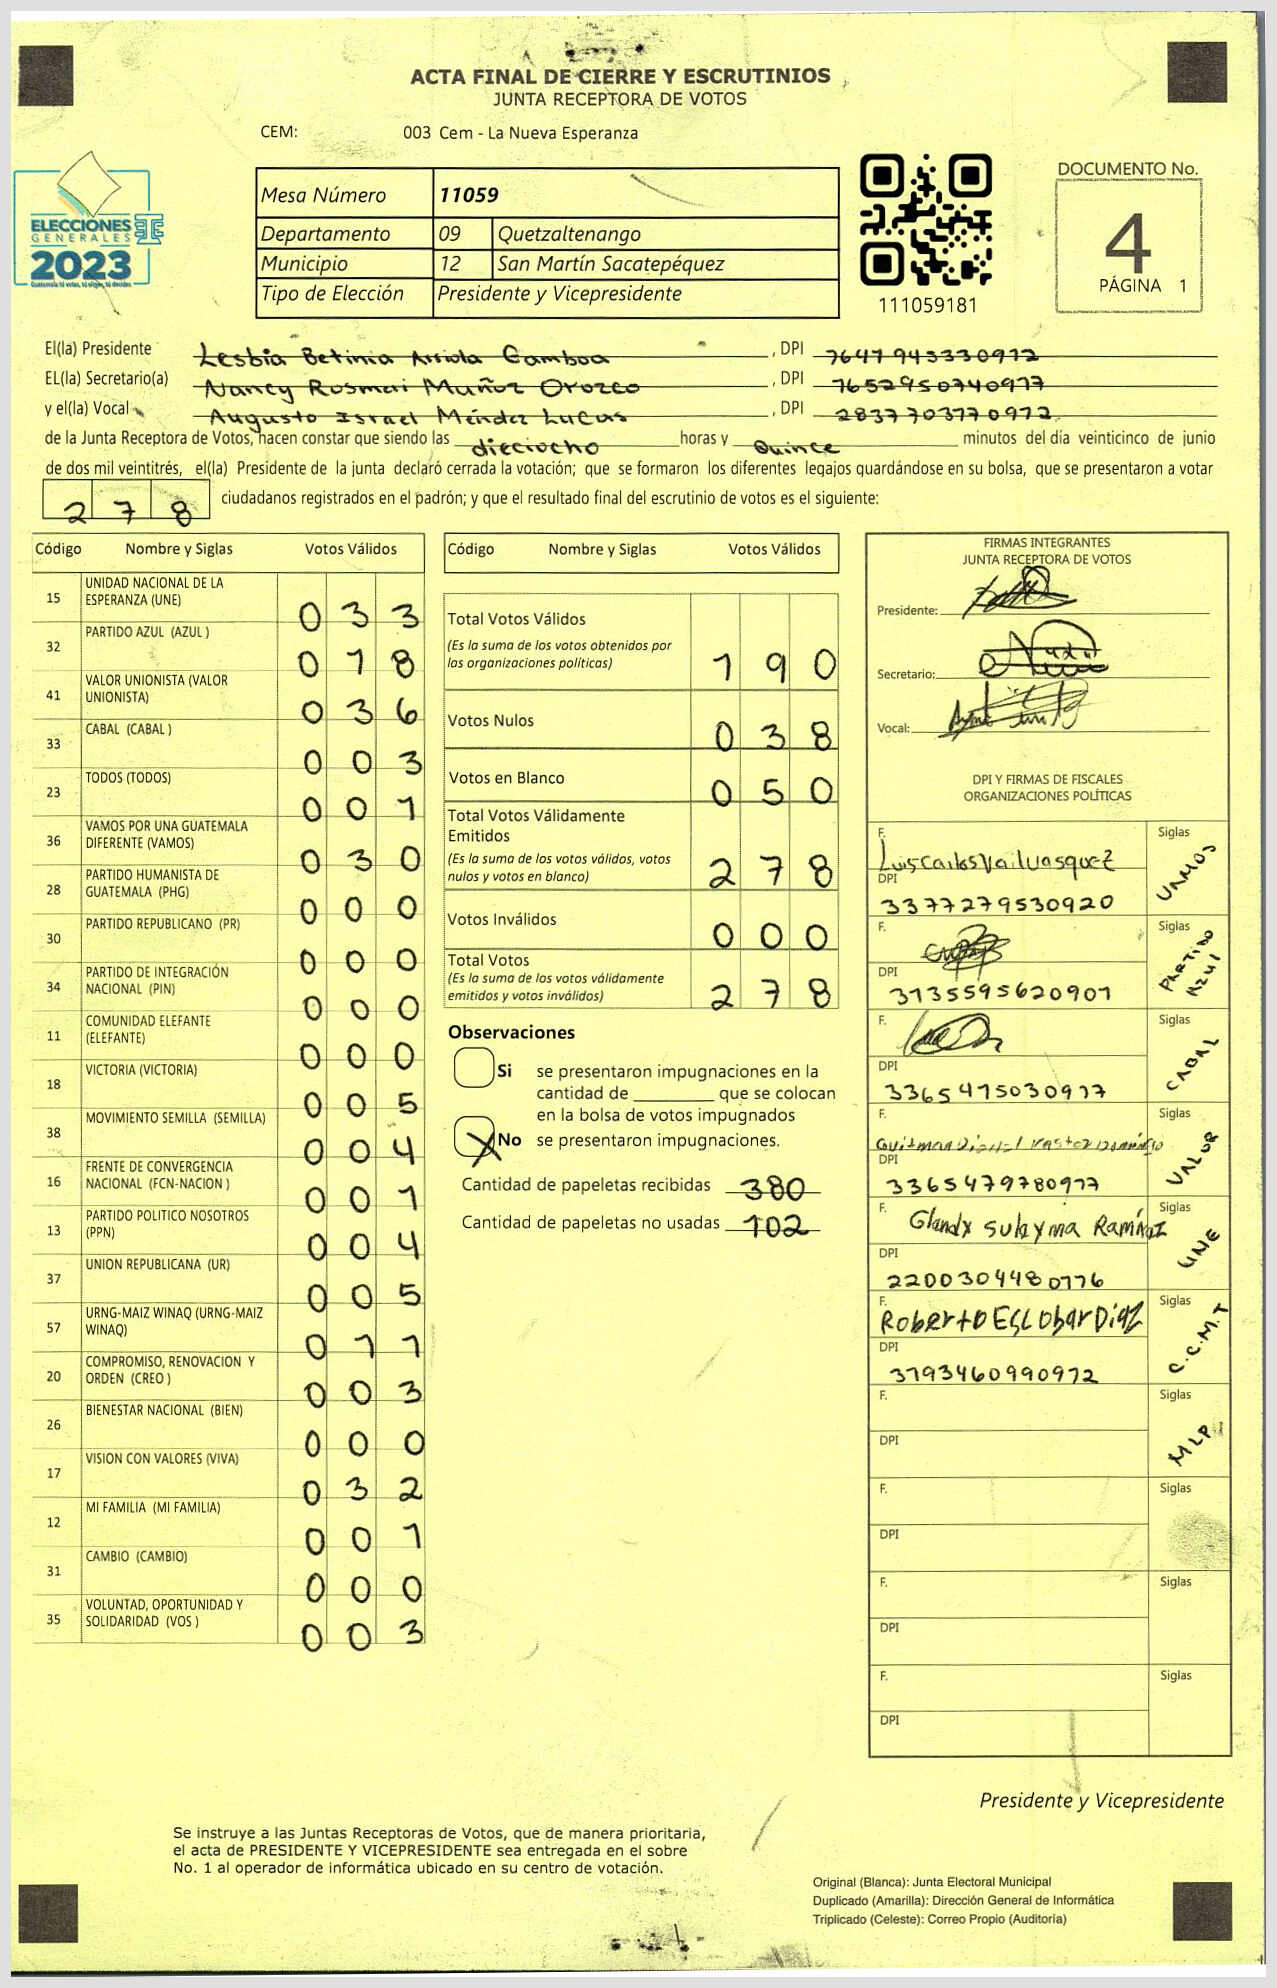 ACTA FINAL DE CIERRE Y ESCRUTINIOS
JUNTA RECEPTORA DE VOTOS
CEM: 003 Cem - La Nueva Esperanza
ELECCIONES
GENERALES
2023
Guatemala tú votas, tú eliges, tú decides
Mesa Número 11059
Departamento 09 Quetzaltenango
Municipio 12 San Martín Sacatepéquez
Tipo de Elección Presidente y Vicepresidente
111059181
DOCUMENTO No.
4
PÁGINA 1
El(la) Presidente Lesbia Betinia Arriola Gamboa, DPI 7647945330972
EL(la) Secretario(a) Nancy Rosmari Muñoz Orozco, DPI 7652950740977
y el(la) Vocal Augusto Israel Méndez Lucas, DPI 2837703770972
de la Junta Receptora de Votos, hacen constar que siendo las dieciocho horas y Quince minutos del día veinticinco de junio
de dos mil veintitrés, el(la) Presidente de la junta declaró cerrada la votación; que se formaron los diferentes legajos guardándose en su bolsa, que se presentaron a votar
278 ciudadanos registrados en el padrón; y que el resultado final del escrutinio de votos es el siguiente:
Código Nombre y Siglas Votos Válidos
15 UNIDAD NACIONAL DE LA ESPERANZA (UNE) 033
32 PARTIDO AZUL (AZUL ) 018
41 VALOR UNIONISTA (VALOR UNIONISTA) 036
33 CABAL (CABAL ) 003
23 TODOS (TODOS) 001
36 VAMOS POR UNA GUATEMALA DIFERENTE (VAMOS) 030
28 PARTIDO HUMANISTA DE GUATEMALA (PHG) 000
30 PARTIDO REPUBLICANO (PR) 000
34 PARTIDO DE INTEGRACIÓN NACIONAL (PIN) 000
11 COMUNIDAD ELEFANTE (ELEFANTE) 000
18 VICTORIA (VICTORIA) 005
38 MOVIMIENTO SEMILLA (SEMILLA) 004
16 FRENTE DE CONVERGENCIA NACIONAL (FCN-NACION ) 001
13 PARTIDO POLITICO NOSOTROS (PPN) 004
37 UNION REPUBLICANA (UR) 005
57 URNG-MAIZ WINAQ (URNG-MAIZ WINAQ) 011
20 COMPROMISO, RENOVACION Y ORDEN (CREO ) 003
26 BIENESTAR NACIONAL (BIEN) 000
17 VISION CON VALORES (VIVA) 032
12 MI FAMILIA (MI FAMILIA) 001
31 CAMBIO (CAMBIO) 000
35 VOLUNTAD, OPORTUNIDAD Y SOLIDARIDAD (VOS ) 003
Código Nombre y Siglas Votos Válidos
Total Votos Válidos
(Es la suma de los votos obtenidos por
las organizaciones políticas) 190
Votos Nulos 038
Votos en Blanco 050
Total Votos Válidamente
Emitidos
(Es la suma de los votos válidos, votos
nulos y votos en blanco) 278
Votos Inválidos 000
Total Votos
(Es la suma de los votos válidamente
emitidos y votos inválidos) 278
Observaciones
Si se presentaron impugnaciones en la
cantidad de ________ que se colocan
en la bolsa de votos impugnados
X No se presentaron impugnaciones.
Cantidad de papeletas recibidas 380
Cantidad de papeletas no usadas 102
FIRMAS INTEGRANTES
JUNTA RECEPTORA DE VOTOS
Presidente:
Secretario:
Vocal:
DPI Y FIRMAS DE FISCALES
ORGANIZACIONES POLÍTICAS
F. Luis Carlos Vail Vasquez Siglas VAMOS
DPI 3377279530920
F. Siglas PARTIDO AZUL
DPI 3135595620901
F. Siglas CABAL
DPI 3365475030917
F. Siglas VALOR
DPI 3365479780917
F. Glendy Suleyma Ramírez Siglas UNE
DPI 2200304480776
F. Roberto Escobar Diaz Siglas C.C.M.T
DPI 3793460990972
F. Siglas MLP
DPI
F. Siglas
DPI
F. Siglas
DPI
F. Siglas
DPI
Presidente y Vicepresidente
Se instruye a las Juntas Receptoras de Votos, que de manera prioritaria,
el acta de PRESIDENTE Y VICEPRESIDENTE sea entregada en el sobre
No. 1 al operador de informática ubicado en su centro de votación.
Original (Blanca): Junta Electoral Municipal
Duplicado (Amarilla): Dirección General de Informática
Triplicado (Celeste): Correo Propio (Auditoría)